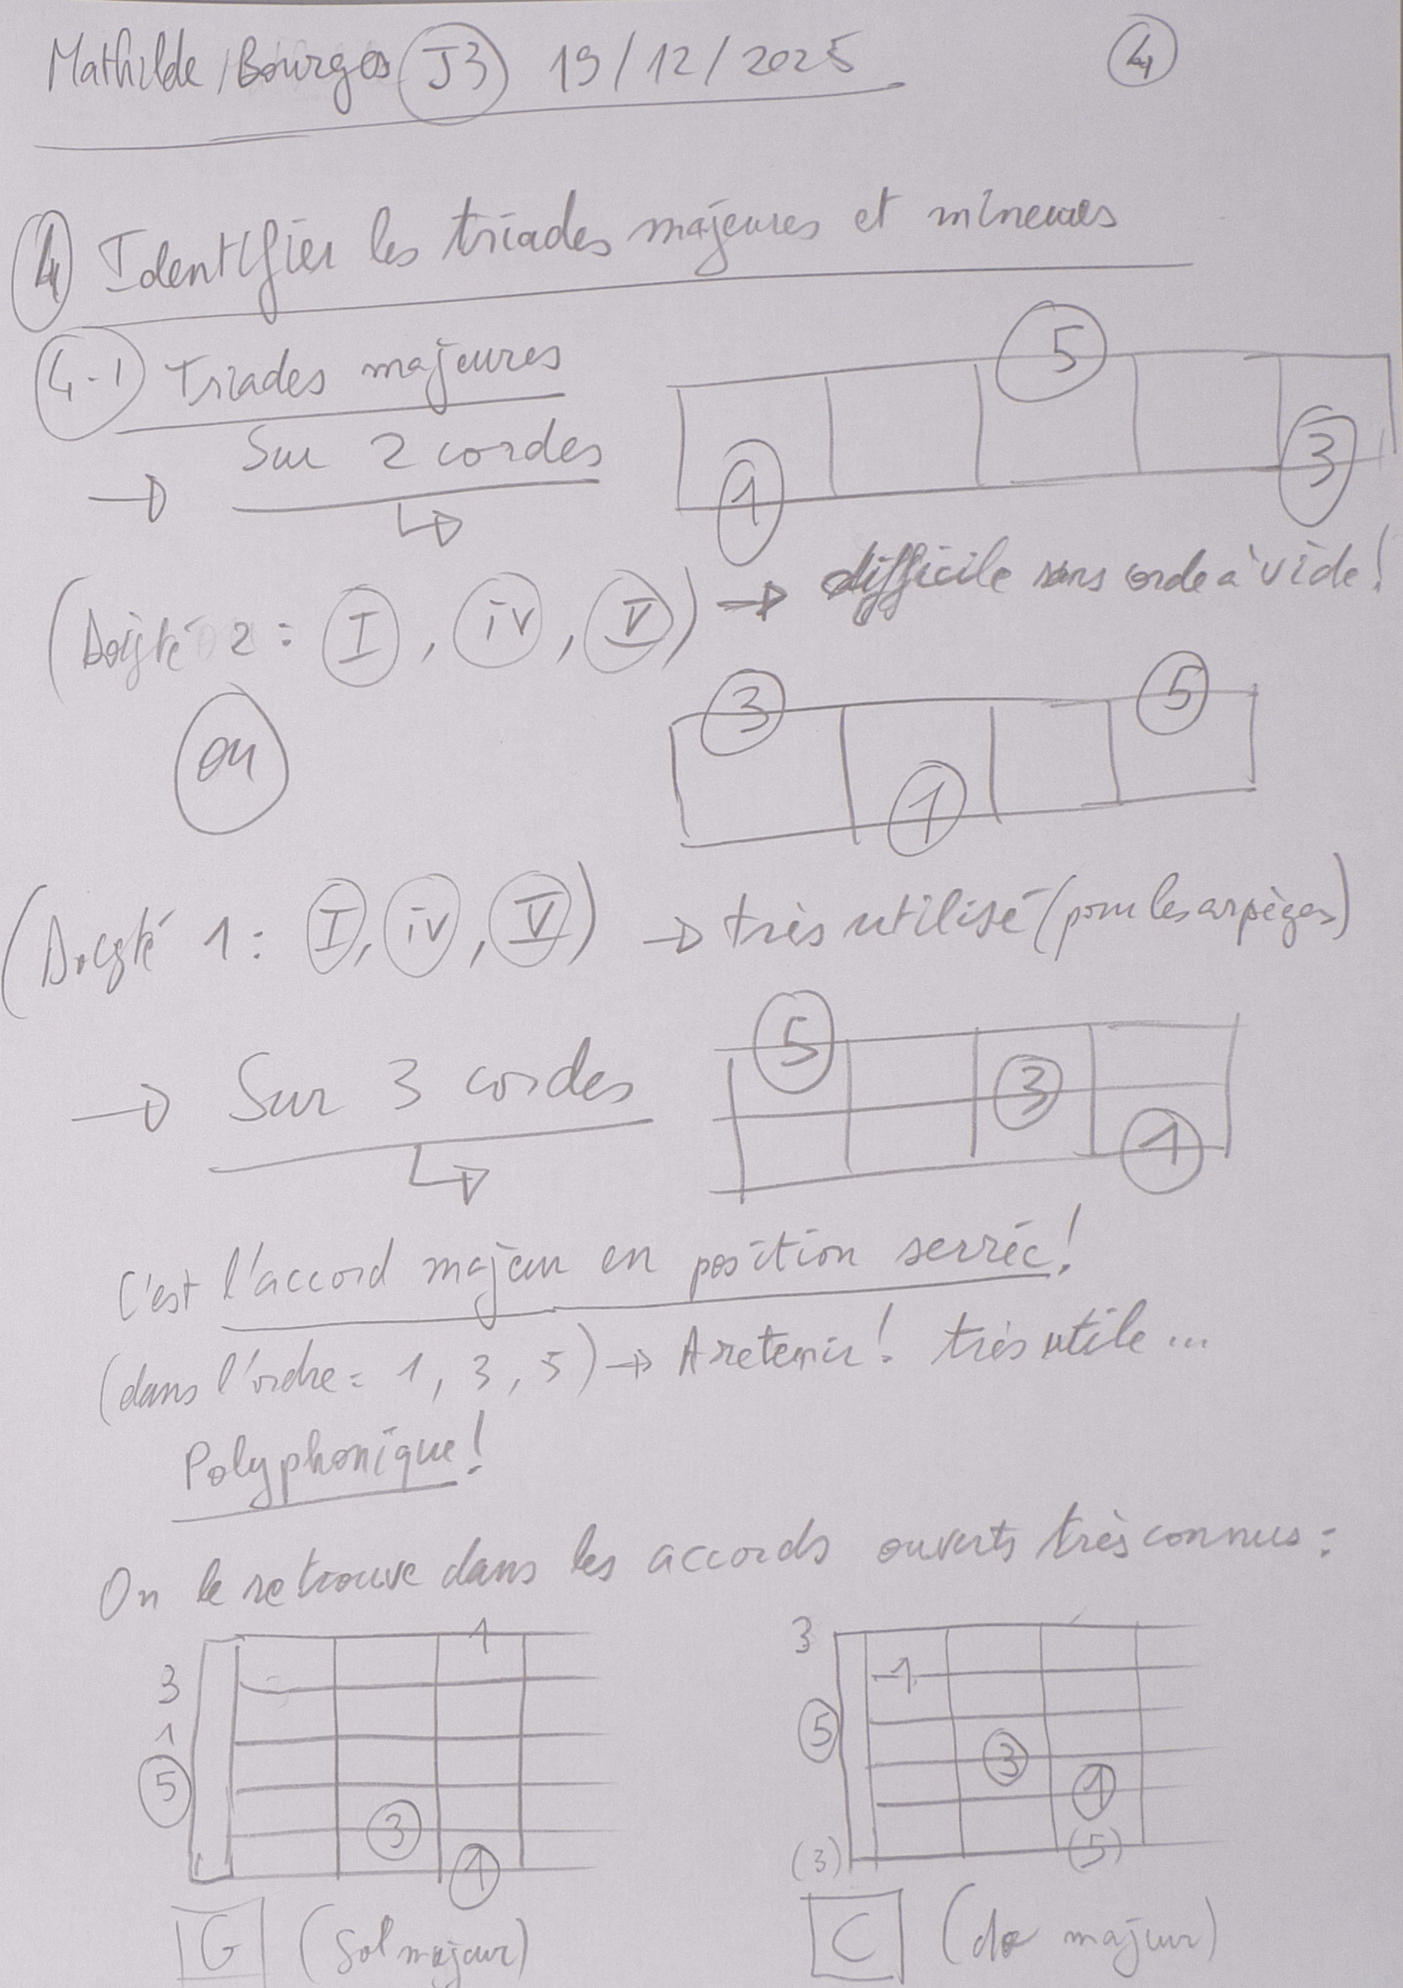 Mathilde / Bourges J3 19/12/2025 4
4 Identifier les triades majeures et mineures
4-1 Triades majeures
5
→ Sur 2 cordes
1 3
(Doigté 2 : I, iv, V) → difficile sans corde à vide !
3 5
ou
1
(Doigté 1 : I, iv, V) → très utilisé (pour les arpèges)
5
→ Sur 3 cordes
3
1
C'est l'accord majeur en position serrée !
(dans l'ordre = 1, 3, 5) → A retenir ! très utile ...
Polyphonique !
On le retrouve dans les accords ouverts très connus :
1 3
3 1
1 5
5 3
3 1
1 (3) (5)
G (Sol majeur) C (do majeur)